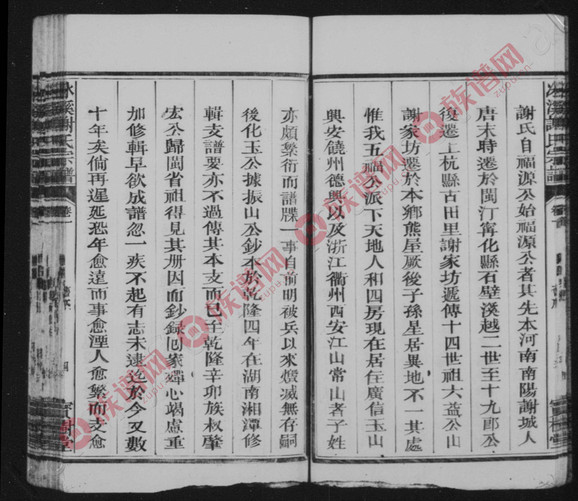 謝氏自福源公始福源公者其先本河南南陽謝城人
唐末時遷於閩汀寧化縣石壁溪越二世至十九郎公
後遷上杭縣古田里謝家坊遞傳十四世祖大益公由
謝家坊遷於本鄉熊屋厰後子孫星居異地不一其處
惟我五福公派下天地人和四房現在居住廣信玉山
興安饒州德興以及浙江衢州西安江山常山者子姓
亦頗繁衍而譜牒一事自前明被兵以來煅滅無存嗣
後化玉公據振山公鈔本於乾隆四年在湖南湘潭修
輯支譜要亦不過傳其本支而已至乾隆辛卯族叔肇
宏公歸閩省祖得見其册因而鈔録囘家殫心竭慮重
加修輯早欲成譜忽一疾不起有志未逮迄於今又數
十年矣倘再遲延恐年愈遠而事愈湮人愈繁而支愈
氷溪謝氏宗譜
卷一